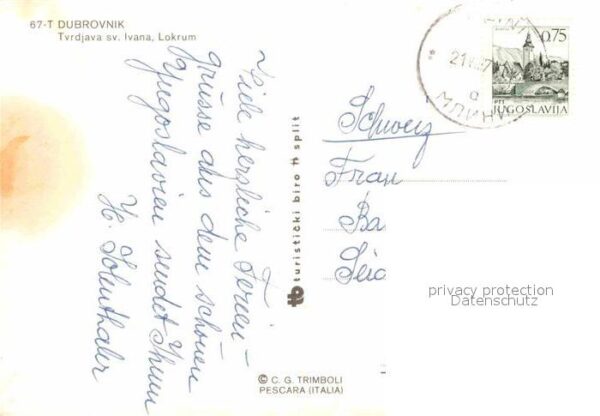 67-T DUBROVNIK
Tvrdjava sv. Ivana, Lokrum
Viele herzliche Ferien-
grüsse aus dem schönen
Yugoslavien sendet Ihnen
H.
turistički biro split
© C. G. TRIMBOLI
PESCARA (ITALIA)
0.75
JUGOSLAVIJA
МЛИНИ
Schweiz
Fran
Ba
privacy protection
Datenschutz